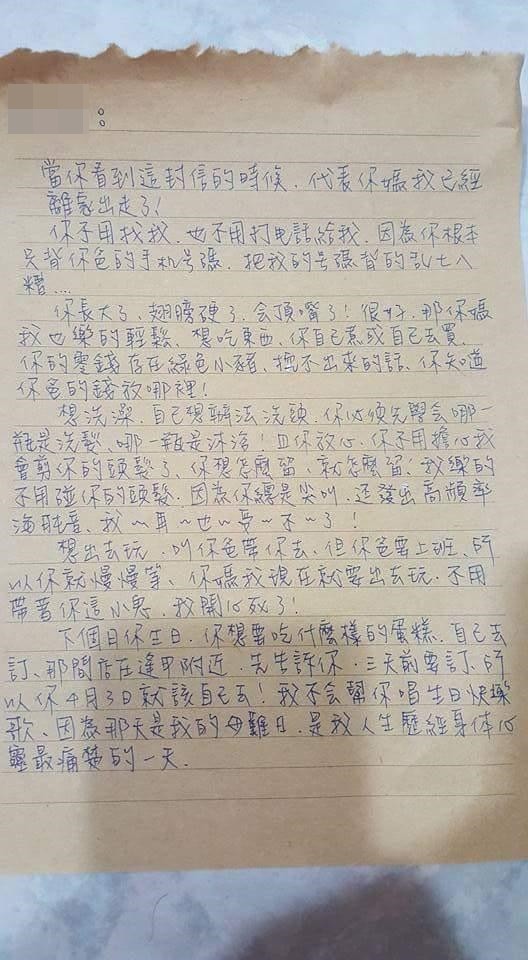 :
當你看到這封信的時候．代表你媽我已經
離家出走了！
你不用找我．也不用打电話給我．因為你根本
只背你爸的手机号碼．把我的号碼背的乱七八
糟....
你長大了、翅膀硬了．会頂嘴了！很好．那你媽
我也樂的輕鬆、想吃東西、你自己煮或自己去買．
你的零錢存在綠色小豬、挖不出來的話、你知道
你爸的錢放哪裡！
想洗澡．自己想辦法洗頭．你必須先學会哪一
瓶是洗髮、哪一瓶是沐浴！但你放心．你不用擔心我
會剪你的頭髮了、你想怎麼留．就怎麼留！我樂的
不用碰你的頭髮．因為你總是尖叫．还發出高頻率
海豚音、我～再～也～受～不～了！
想出去玩．叫你爸帶你去、但你爸要上班、所
以你就慢慢等、你媽我現在就要出去玩．不用
帶著你這小鬼．我開心死了！
下個日你生日．你想要吃什麼樣的蛋糕．自己去
訂、那間店在逢甲附近．先告訴你．三天前要訂、所
以你4月3日就該自己去！我不会幫你唱生日快樂
歌、因為那天是我的母難日．是我人生歷經身体心
靈最痛楚的一天．